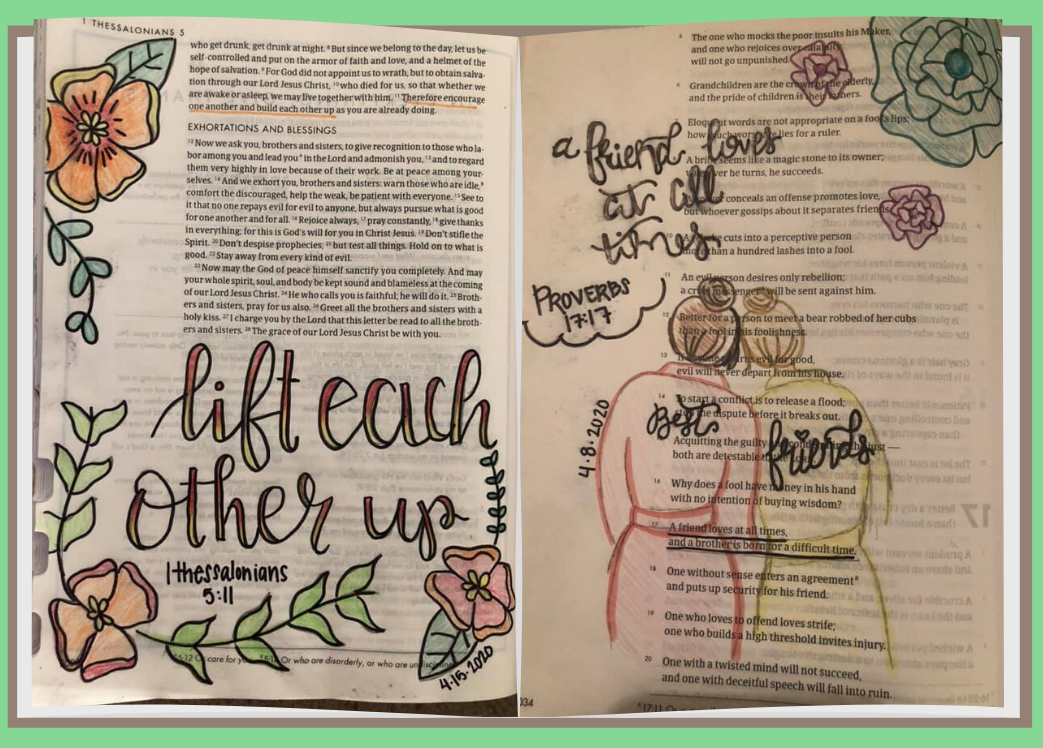 1 THESSALONIANS 5
who get drunk, get drunk at night. ⁸ But since we belong to the day, let us be
self-controlled and put on the armor of faith and love, and a helmet of the
hope of salvation. ⁹ For God did not appoint us to wrath, but to obtain salva-
tion through our Lord Jesus Christ, ¹⁰ who died for us, so that whether we
are awake or asleep, we may live together with him. ¹¹ Therefore encourage
one another and build each other up as you are already doing.
EXHORTATIONS AND BLESSINGS
¹² Now we ask you, brothers and sisters, to give recognition to those who la-
bor among you and lead you in the Lord and admonish you, ¹³ and to regard
them very highly in love because of their work. Be at peace among your-
selves. ¹⁴ And we exhort you, brothers and sisters: warn those who are idle,
comfort the discouraged, help the weak, be patient with everyone. ¹⁵ See to
it that no one repays evil for evil to anyone, but always pursue what is good
for one another and for all. ¹⁶ Rejoice always, ¹⁷ pray constantly, ¹⁸ give thanks
in everything; for this is God's will for you in Christ Jesus. ¹⁹ Don't stifle the
Spirit. ²⁰ Don't despise prophecies, ²¹ but test all things. Hold on to what is
good. ²² Stay away from every kind of evil.
²³ Now may the God of peace himself sanctify you completely. And may
your whole spirit, soul, and body be kept sound and blameless at the coming
of our Lord Jesus Christ. ²⁴ He who calls you is faithful; he will do it. ²⁵ Broth-
ers and sisters, pray for us also. ²⁶ Greet all the brothers and sisters with a
holy kiss. ²⁷ I charge you by the Lord that this letter be read to all the broth-
ers and sisters. ²⁸ The grace of our Lord Jesus Christ be with you.
lift each
other up
1 thessalonians
5:11
5:12 Or care for you 5:14 Or who are disorderly, or who are undisciplined
4.15.2020
5 The one who mocks the poor insults his Maker,
and one who rejoices over calamity
will not go unpunished.
6 Grandchildren are the crown of the elderly,
and the pride of children is their fathers.
Eloquent words are not appropriate on a fool's lips;
how much worse are lies for a ruler.
a friend loves
A bribe seems like a magic stone to its owner;
wherever he turns, he succeeds.
at all
conceals an offense promotes love,
but whoever gossips about it separates friends.
times.
cuts into a perceptive person
more than a hundred lashes into a fool.
PROVERBS
17:17
11 An evil person desires only rebellion;
a cruel messenger will be sent against him.
12 Better for a person to meet a bear robbed of her cubs
than a fool in his foolishness.
13 evil for good,
evil will never depart from his house.
14 To start a conflict is to release a flood;
stop the dispute before it breaks out.
Best
friends
4.8.2020
Acquitting the guilty just —
both are detestable
16 Why does a fool have money in his hand
with no intention of buying wisdom?
17 A friend loves at all times,
and a brother is born for a difficult time.
18 One without sense enters an agreement
and puts up security for his friend.
19 One who loves to offend loves strife;
one who builds a high threshold invites injury.
20 One with a twisted mind will not succeed,
and one with deceitful speech will fall into ruin.
034